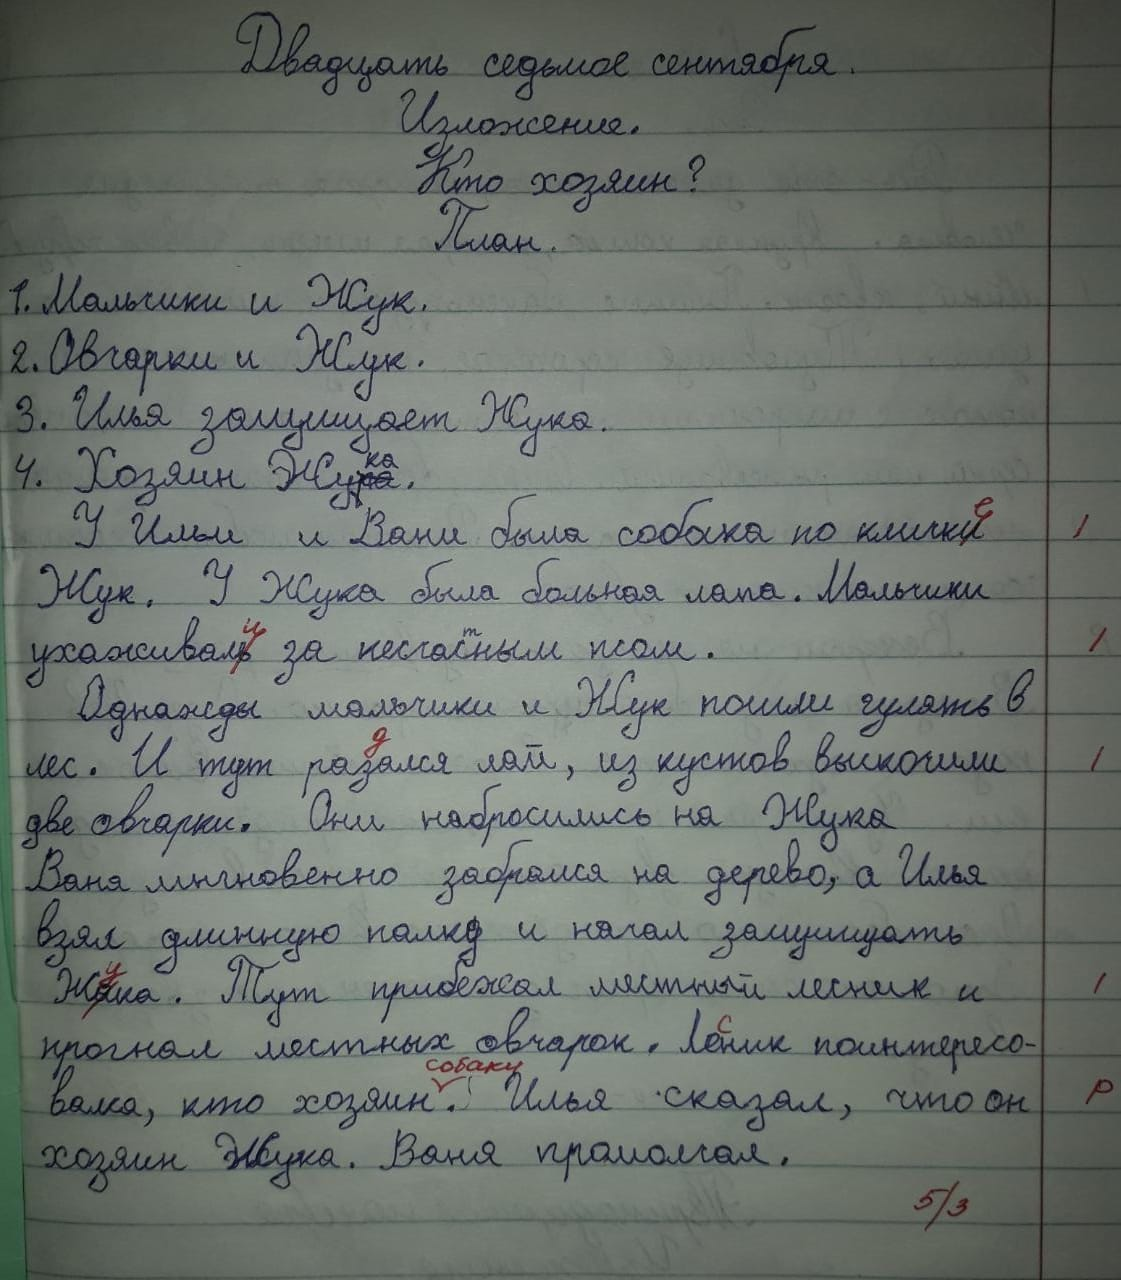 Двадцать седьмое сентября.
Изложение.
Кто хозяин?
План.
1. Мальчики и Жук.
2. Овчарки и Жук.
3. Илья защищает Жука.
4. Хозяин Жука.
У Ильи и Вани была собака по кличке 1
Жук. У Жука была больная лапа. Мальчики
ухаживали за несчастным псом. 1
Однажды мальчики и Жук пошли гулять в
лес. И тут раздался лай, из кустов выскочили 1
две овчарки. Они набросились на Жука
Ваня мгновенно забрался на дерево, а Илья
взял длинную палку и начал защищать
Жука. Тут прибежал местный лесник и 1
прогнал местных овчарок. Лесник поинтересо-
собаки
валка, кто хозяин. Илья сказал, что он р
хозяин Жука. Ваня промолчал.
5/3